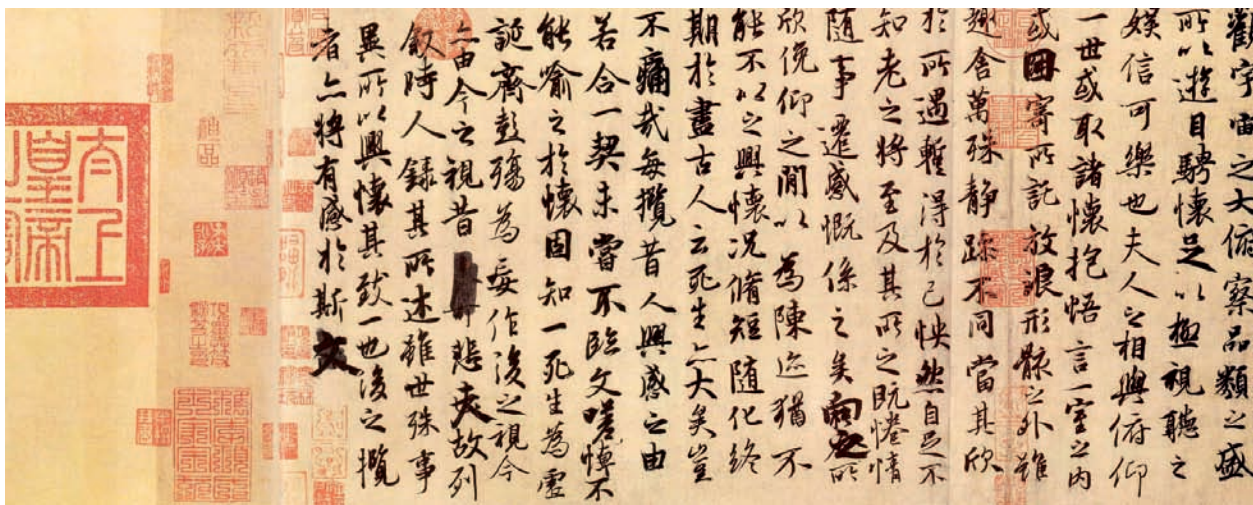 觀宇宙之大俯察品類之盛
所以遊目騁懷足以極視聽之
娛信可樂也夫人之相與俯仰
一世或取諸懷抱悟言一室之內
或因寄所託放浪形骸之外雖
趣舍萬殊靜躁不同當其欣
於所遇暫得於己怏然自足不
知老之將至及其所之既惓情
隨事遷感慨係之矣向之所
欣俛仰之閒以為陳迹猶不
能不以之興懷況脩短隨化終
期於盡古人云死生亦大矣豈
不痛哉每攬昔人興感之由
若合一契未嘗不臨文嗟悼不
能喻之於懷固知一死生為虛
誕齊彭殤為妄作後之視今
亦由今之視昔悲夫故列
敘時人錄其所述雖世殊事
異所以興懷其致一也後之攬
者亦將有感於斯文
太上
皇帝